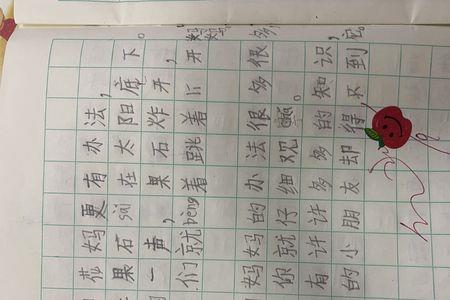 花妈更有办法，
果石sài在太阳底下，
一声，果石炸开，
们就bèng着跳着li开
妈妈的办法很多很多，
你就仔细观察。
有许许多多的知识，
的小朋友却得不到它。